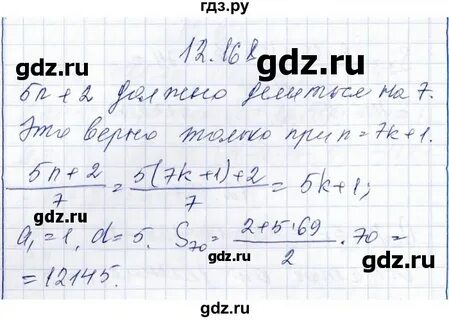 гдз.ру
12.168
gdz.ru gdz.ru
5n+2 должно делиться на 7.
Это верно только при n=7k+1.
gdz.ru gdz.ru
(5n+2)/7 = (5(7k+1)+2)/7 = 5k+1;
gdz.ru gdz.ru
a₁=1, d=5. S₇₀ = (2+5·69)/2 · 70 =
=12145.
gdz.ru gdz.ru